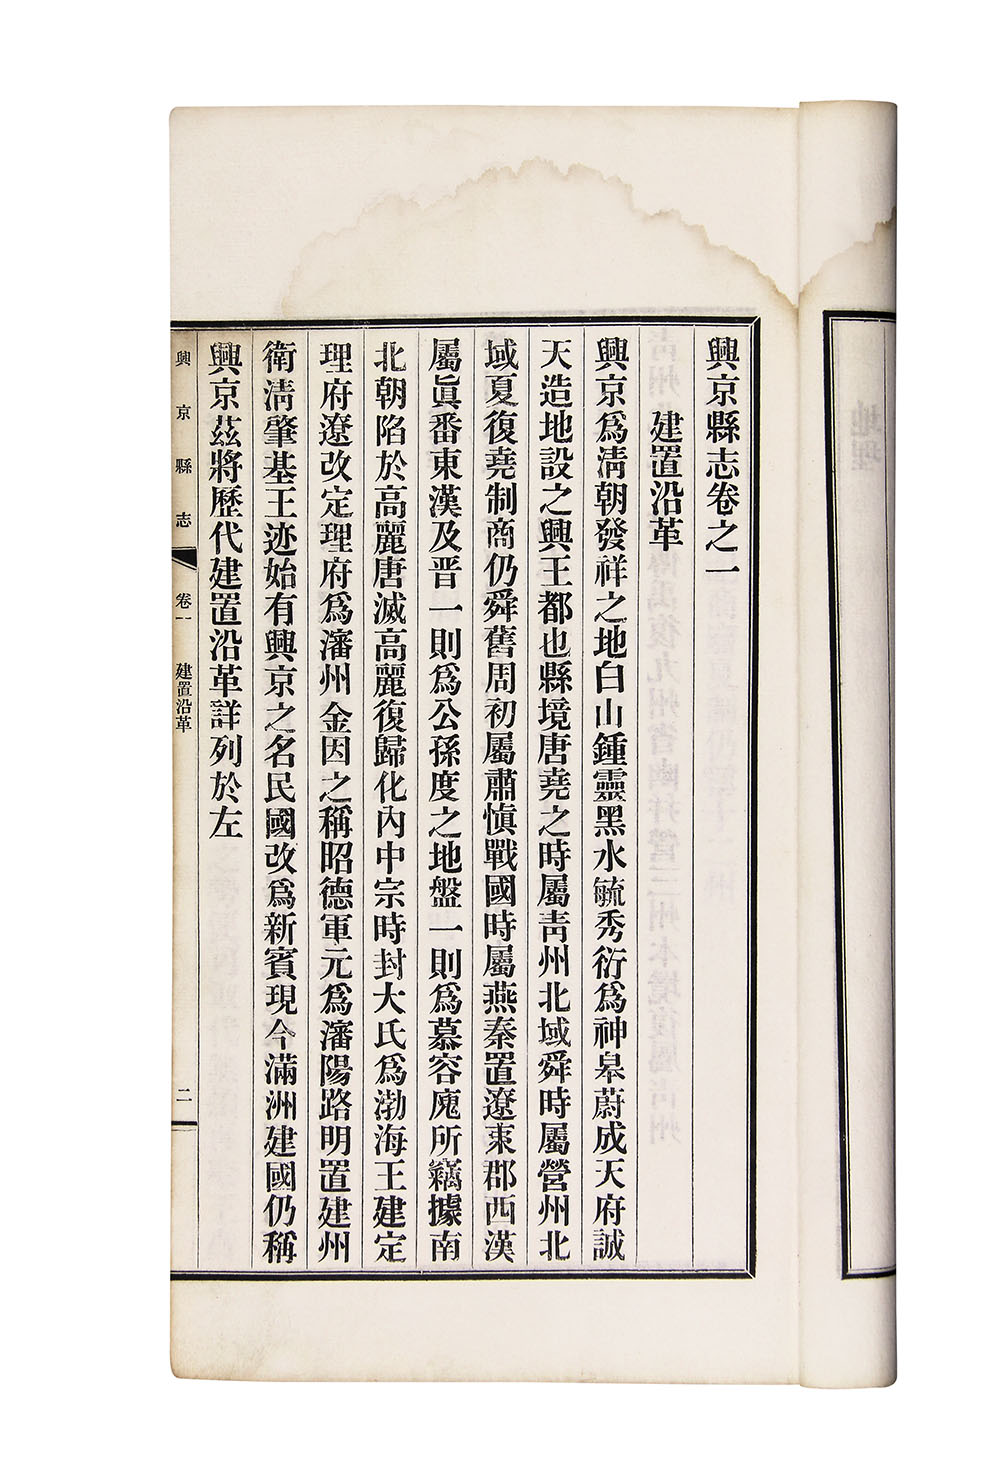 興京縣志卷之一
建置沿革
興京爲淸朝發祥之地白山鍾靈黑水毓秀衍爲神皋蔚成天府誠
天造地設之興王都也縣境唐堯之時屬靑州北域舜時屬營州北
域夏復堯制商仍舜舊周初屬肅愼戰國時屬燕秦置遼東郡西漢
屬眞番東漢及晋一則爲公孫度之地盤一則爲慕容廆所竊據南
北朝陷於高麗唐滅高麗復歸化內中宗時封大氏爲渤海王建定
理府遼改定理府爲瀋州金因之稱昭德軍元爲瀋陽路明置建州
衛淸肇基王迹始有興京之名民國改爲新賓現今滿洲建國仍稱
興京茲將歷代建置沿革詳列於左
興京縣志 卷一 建置沿革 二
地理